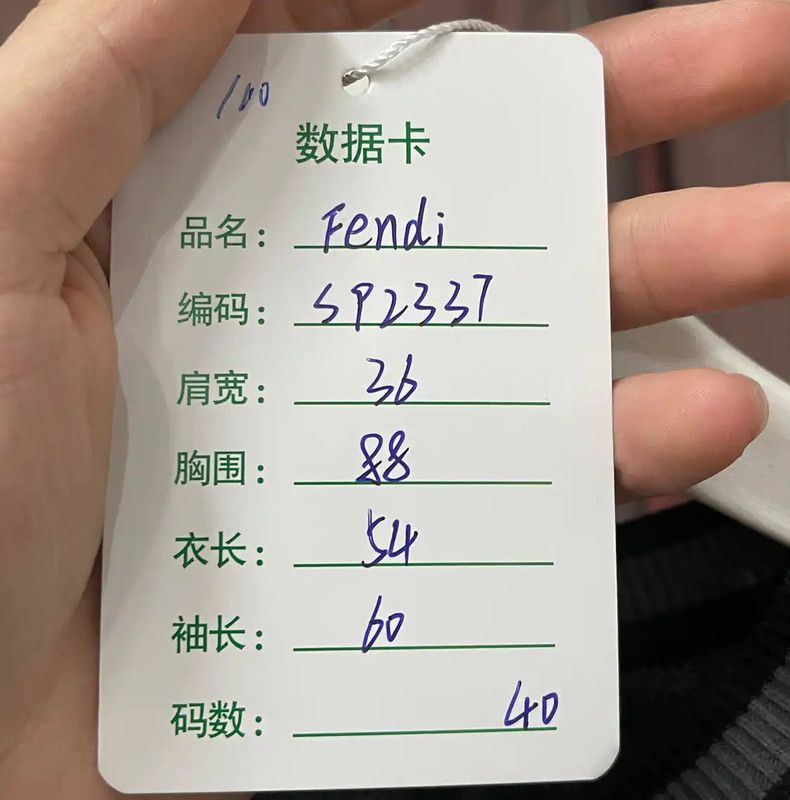 100
数据卡
品名: Fendi
编码: SP2337
肩宽: 36
胸围: 88
衣长: 54
袖长: 60
码数: 40